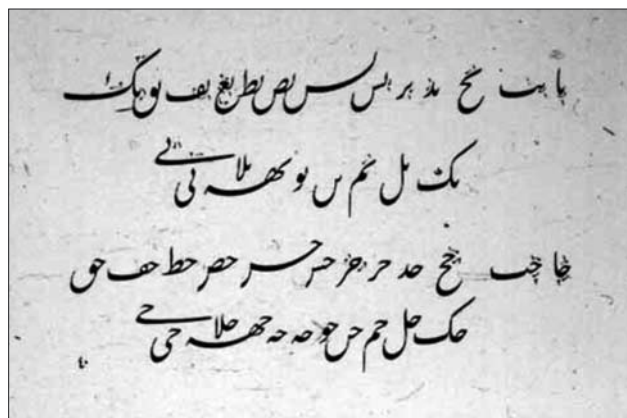 با بت بج بد بر بس بس بص بط بع بف بق بک
بک بل بم بن بو بهه بلا بی بے
حا حب حج حد حر حر حس حس حص حط حف حق
حک حل حم حن حو حه حه حهه حلا حی حے